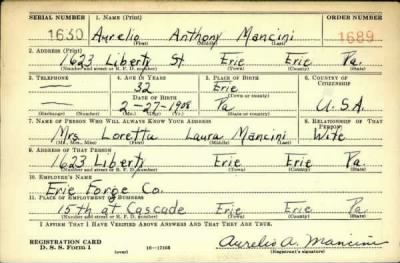 SERIAL NUMBER 1. NAME (Print) ORDER NUMBER
1630 Aurelio Anthony Mancini 1689
(First) (Middle) (Last)
2. ADDRESS (Print)
1623 Liberty St Erie Erie Pa.
(Number and street or R. F. D. number) (Town) (County) (State)
3. TELEPHONE 4. AGE IN YEARS 5. PLACE OF BIRTH 6. COUNTRY OF CITIZENSHIP
— 32 Erie
DATE OF BIRTH (Town or county)
— 2-27-1908 Pa U.S.A.
(Exchange) (Number) (Mo.) (Day) (Yr.) (State or country)
7. NAME OF PERSON WHO WILL ALWAYS KNOW YOUR ADDRESS 8. RELATIONSHIP OF THAT PERSON
Mrs. Loretta Laura Mancini Wife
(Mr., Mrs., Miss) (First) (Middle) (Last)
9. ADDRESS OF THAT PERSON
1623 Liberty Erie Erie Pa.
(Number and street or R. F. D. number) (Town) (County) (State)
10. EMPLOYER'S NAME
Erie Forge Co.
11. PLACE OF EMPLOYMENT OR BUSINESS
15th at Cascade Erie Erie Pa.
(Number and street or R. F. D. number) (Town) (County) (State)
I AFFIRM THAT I HAVE VERIFIED ABOVE ANSWERS AND THAT THEY ARE TRUE.
REGISTRATION CARD
D. S. S. Form 1 (over) 16—17105 Aurelio A. Mancini
(Registrant's signature)